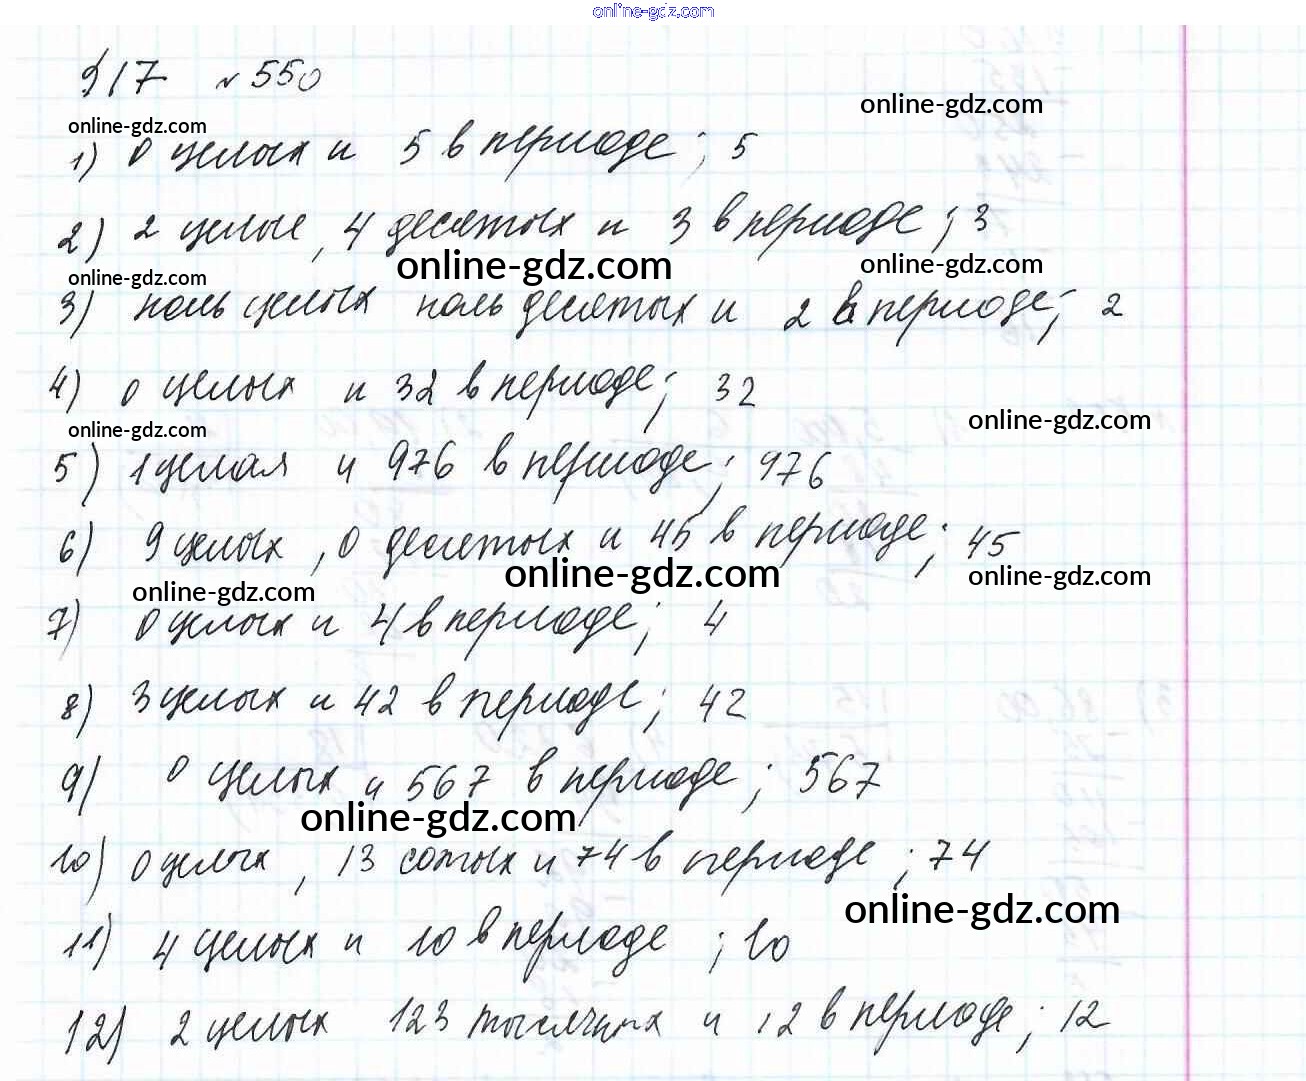 online-gdz.com
§17 № 550
online-gdz.com
online-gdz.com
1) 0 целых и 5 в периоде; 5
2) 2 целые, 4 десятых и 3 в периоде; 3
online-gdz.com
online-gdz.com
online-gdz.com
3) ноль целых ноль десятых и 2 в периоде; 2
4) 0 целых и 32 в периоде; 32
online-gdz.com
online-gdz.com
5) 1 целая и 976 в периоде; 976
6) 9 целых, 0 десятых и 45 в периоде; 45
online-gdz.com
online-gdz.com
online-gdz.com
7) 0 целых и 4 в периоде; 4
8) 3 целых и 42 в периоде; 42
9) 0 целых и 567 в периоде; 567
online-gdz.com
10) 0 целых, 13 сотых и 74 в периоде; 74
online-gdz.com
11) 4 целых и 10 в периоде; 10
12) 2 целых 123 тысячных и 12 в периоде; 12